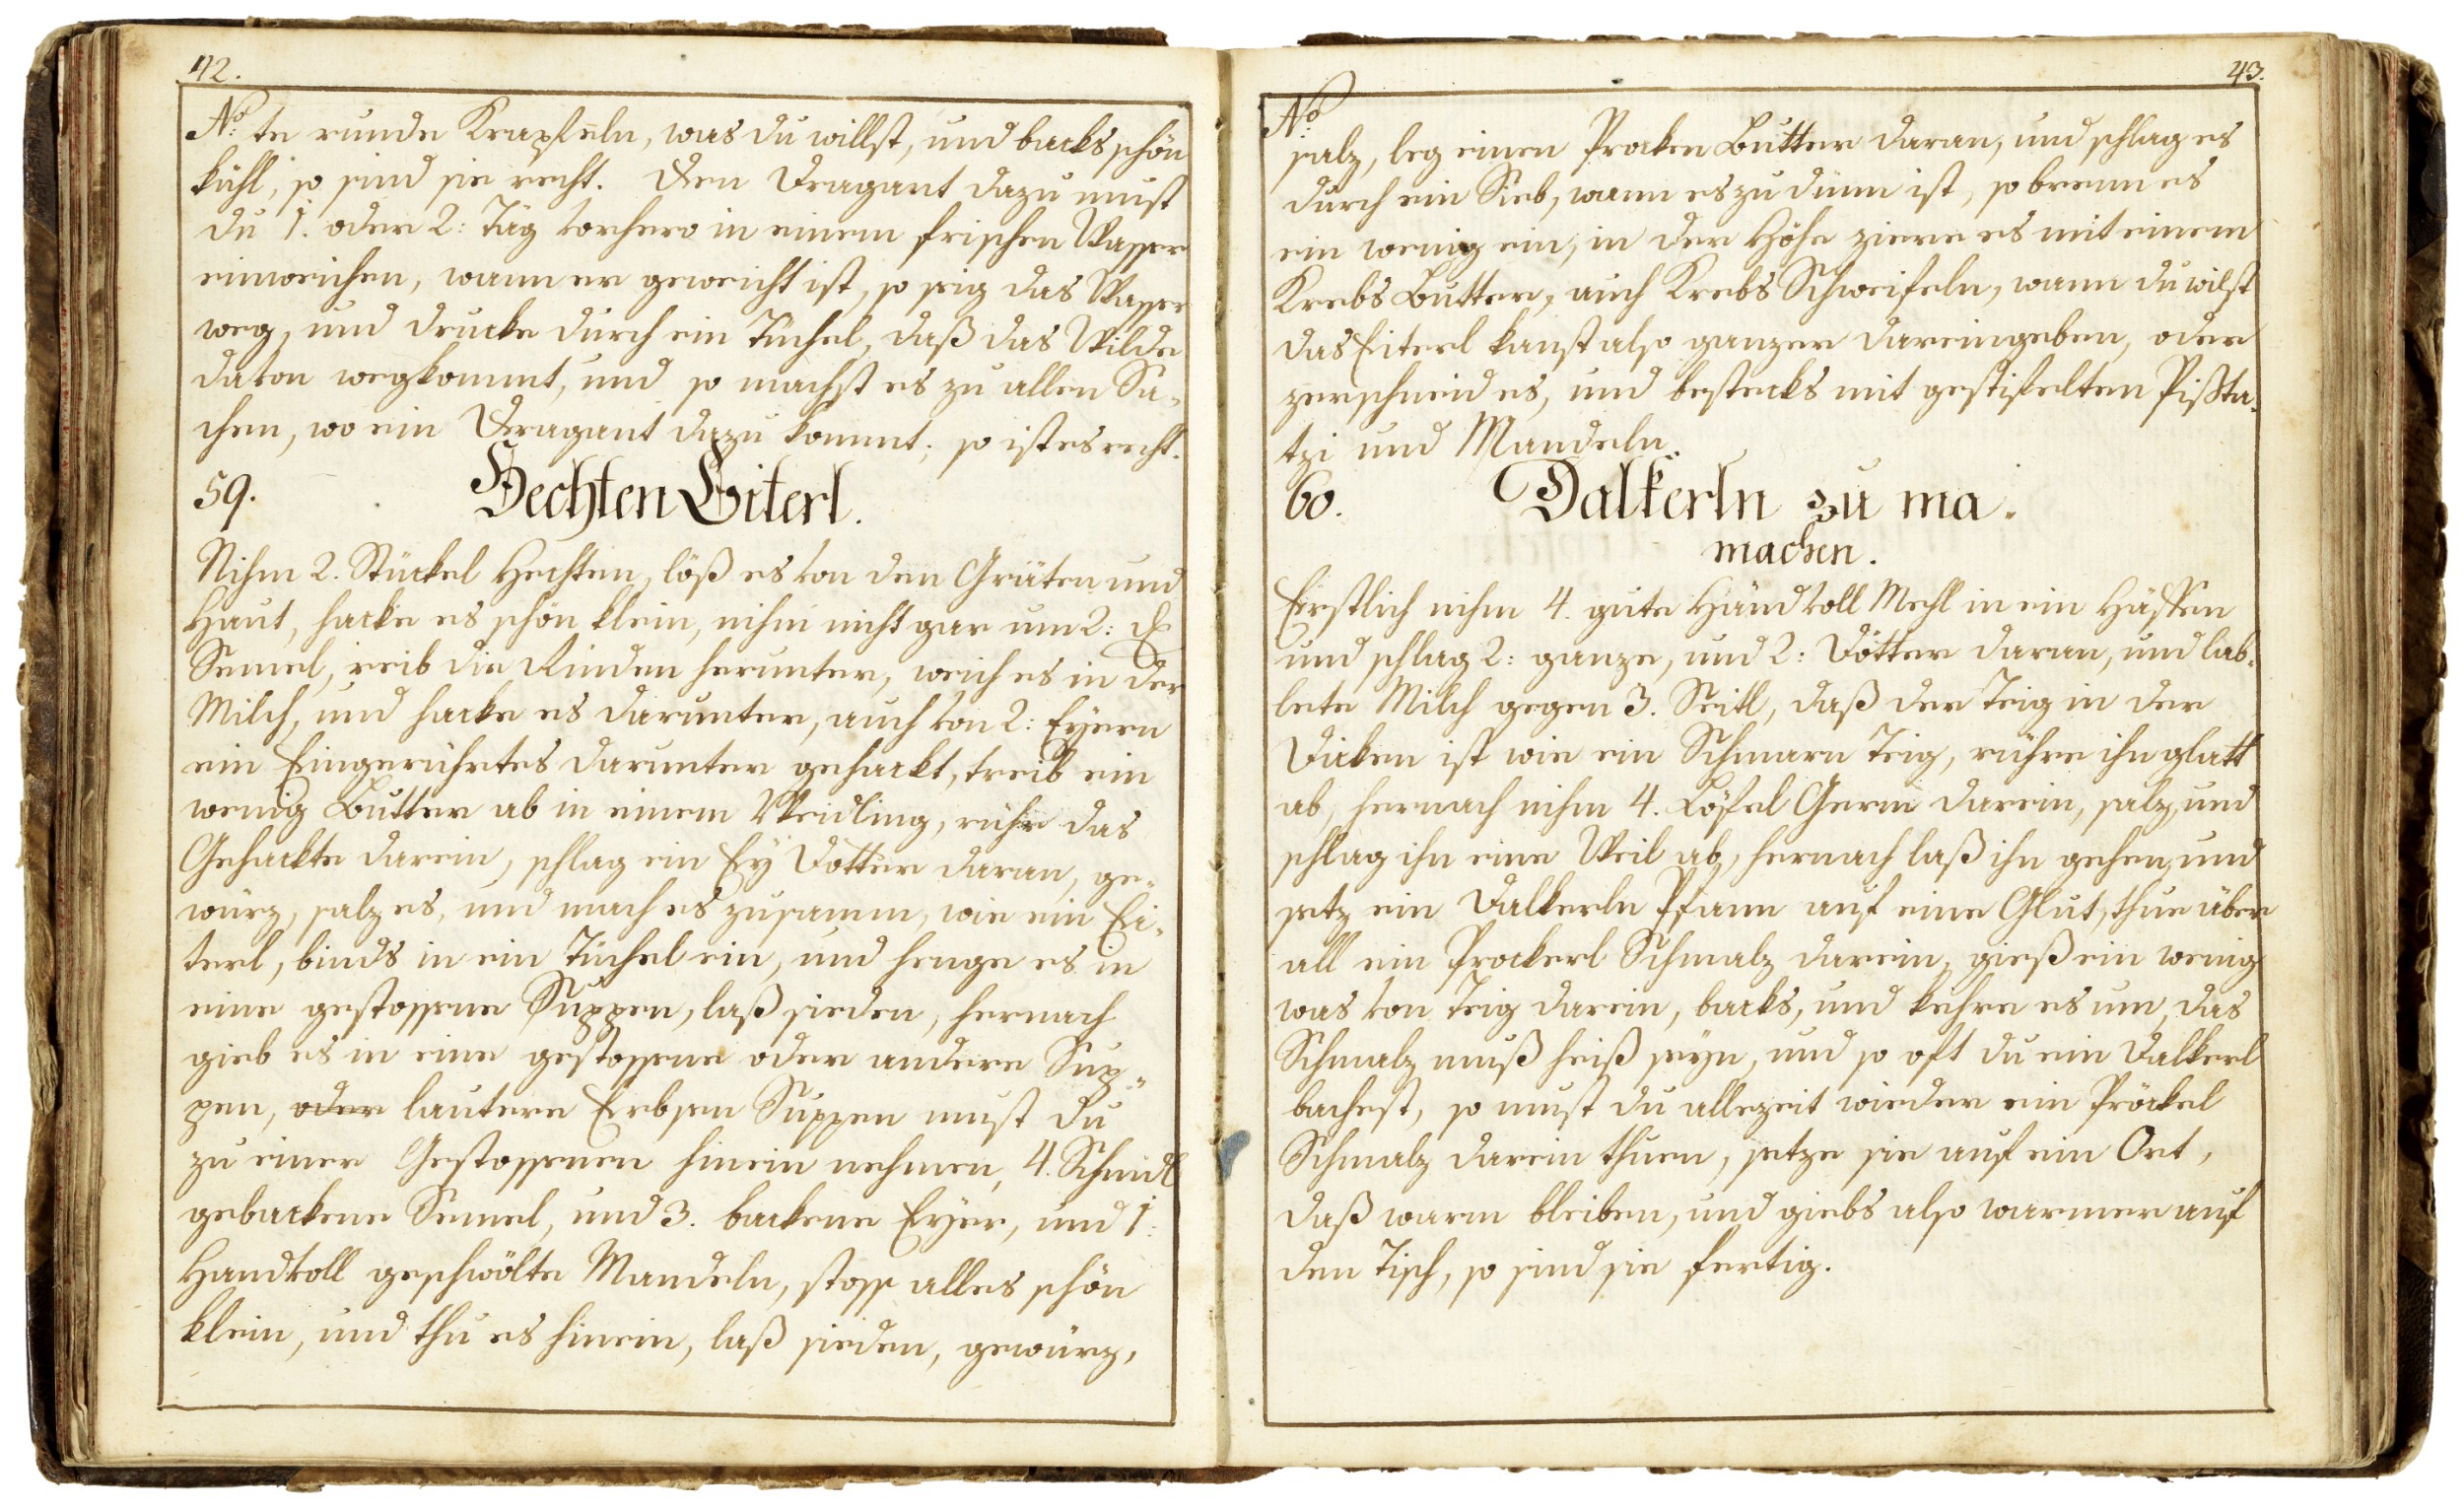 42.
No: te runde Krapfeln, was du willst, und backs schön
kühl, so sind sie recht. Den Dragant dazu must
du 1. oder 2: Täg vorhero in einem frischen Wasser
einweichen, wann er geweicht ist, so seig das Wasser
weg, und drucke durch ein Tüchel, daß das Wilde
davon wegkommt, und so machst es zu allen Sa-
chen, wo ein Dragant dazu kommt; so ist es recht.
59. Hechten Eiterl.
Nihm 2. Stückel Hechten, löß es von den Gräten und
Haut, hacke es schön klein, nihm nicht gar um 2: d
Semel, reib die Rinden herunter, weich es in der
Milch, und hacke es darunter, auch von 2: Eyern
ein Eingerührtes darunter gehackt, treib ein
wenig Butter ab in einem Weidling, rühr das
Gehackte darein, schlag ein Ey Dotter daran, ge-
würz, salz es, und mach es zusamm, wie ein Ei-
terl, binds in ein Tüchel ein, und henge es in
eine gestossene Suppen, laß sieden, hernach
gieb es in eine gestossene oder andere Sup-
pen, oder lautere Erbsen Suppen must du
zu einer Gestossenen hinein nehmen, 4. Schnidl
gebackene Semel, und 3. backene Eyer, und 1:
Handvoll geschwölte Mandeln, stoss alles schön
klein, und thu es hinein, laß sieden, gewürz,
43.
No:
salz, leg einen Procken Butter daran, und schlag es
durch ein Sieb, wann es zu dünn ist, so brenn es
ein wenig ein, in der Höhe ziere es mit einem
Krebs Butter, auch Krebs Schweifeln, wann du wilst
das Eiterl kanst also ganzer dareingeben, oder
zerschneid es, und bestecks mit gestifelten Pißta-
tzi und Mandeln.
60. Dalkerln zu ma-
machen.
Erstlich nihm 4. gute Händvoll Mehl in ein Häffen
und schlag 2: ganze, und 2: Dötter daran, und lab-
lete Milch gegen 3. Seitl, daß der Teig in der
Dicken ist wie ein Schmarn Teig, rühre ihn glatt
ab, hernach nihm 4. Löfel Germ darein, salz, und
schlag ihn eine Weil ab, hernach laß ihn gehen, und
setz ein Dalkerln Pfann auf eine Glut, thue über
all ein Prockerl Schmalz darein, gieß ein wenig
was von Teig darein, backs, und kehre es um, das
Schmalz muß heiß seyn, und so oft du ein Dalkerl
bachest, so must du allezeit wieder ein Pröckel
Schmalz darein thuen, setze sie auf ein Ort,
daß warm bleiben, und giebs also warmer auf
den Tisch, so sind sie fertig.